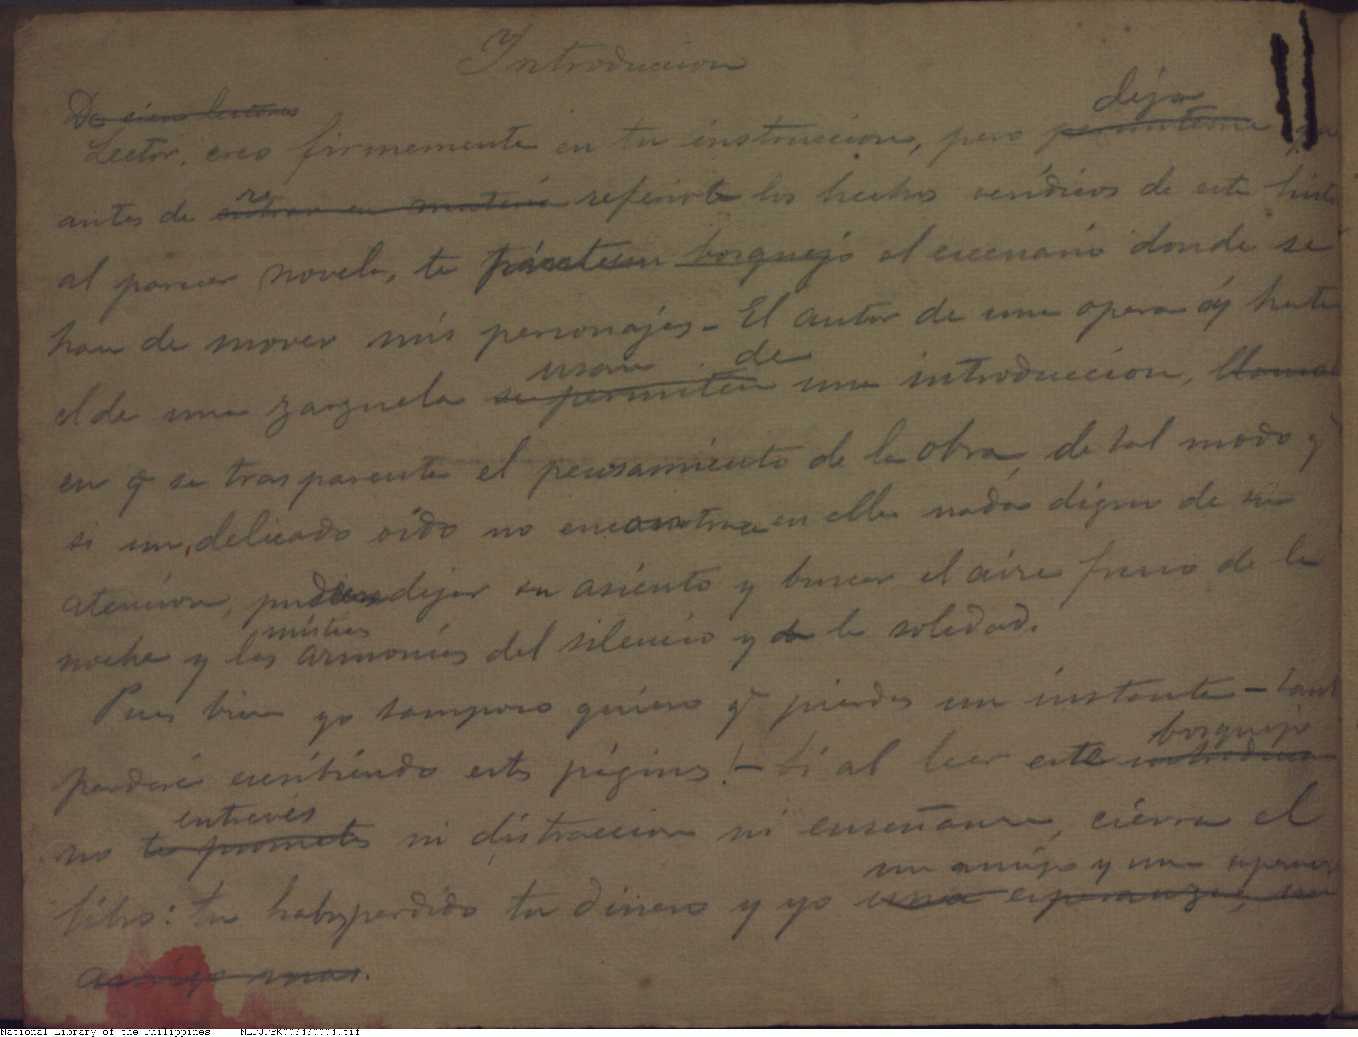 Introduccion
De cien lectores
deja
Lector, creo firmemente en tu instruccion, pero permiteme
antes de entrar en materia referirte los hechos verídicos de esta
al parecer novela, te bosquejo el escenario donde se
han de mover mis personajes — El autor de una opera y hasta
usan de
el de una zarzuela se permiten una introduccion,
en q̃ se trasparente el pensamiento de la obra, de tal modo q̃
si un delicado oído no encontrase en ella nada digno de su
atencion, pudiese dejar su asiento y buscar el aire fresco de la
místicas
noche y las armonías del silencio y de la soledad.
Pues bien yo tampoco quiero q̃ pierdas un instante —
bosquejo
perderé escribiendo estas páginas! — Si al leer este
entrevés
no te promete ni distraccion ni enseñanza, cierra el
un amigo y una
libro: tu habrás perdido tu dinero y yo una esperanza, un
amigo mas.
National Library of the Philippines